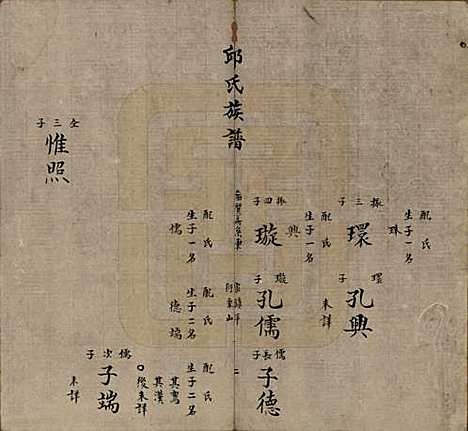 邱氏族譜
振三子
環
配氏
生子一名
環子
孔興
未詳
振四子
璇
配氏
生子一名
璇子
孔儒
配氏
生子二名
德
端
儒長子
子德
配氏
生子二名
其鸞
其漢
後未詳
儒次子
子端
未詳
仝三子
惟照